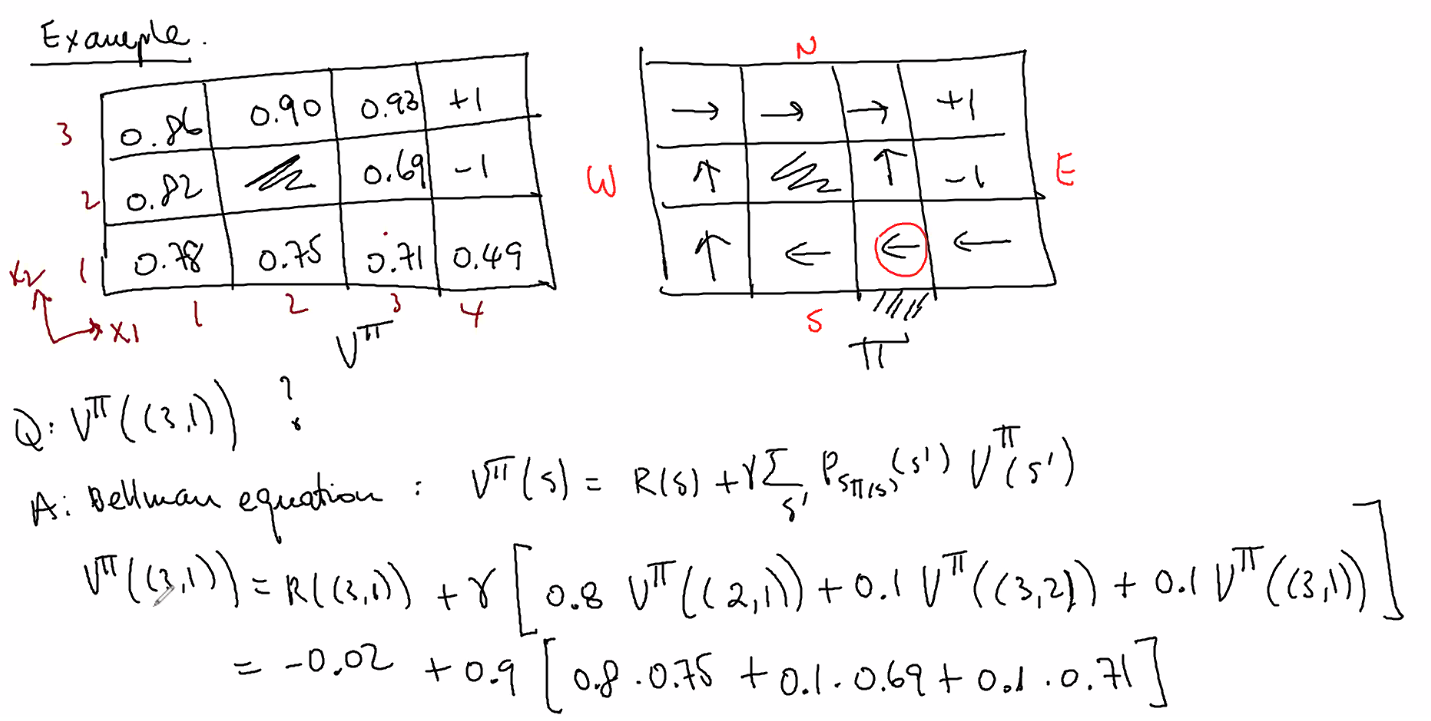 Example.
N
3 0.86 0.90 0.93 +1
→ → → +1
2 0.82 0.69 -1
W ↑ ↑ -1 E
1 0.78 0.75 0.71 0.49
↑ ← ← ←
x2
x1
1 2 3 4
S
V^π
π
Q: V^π((3,1)) ?
A: Bellman equation : V^π(s) = R(s) + γ Σ_s' P_sπ(s)(s') V^π(s')
V^π((3,1)) = R((3,1)) + γ [ 0.8 V^π((2,1)) + 0.1 V^π((3,2)) + 0.1 V^π((3,1)) ]
= -0.02 + 0.9 [ 0.8 · 0.75 + 0.1 · 0.69 + 0.1 · 0.71 ]